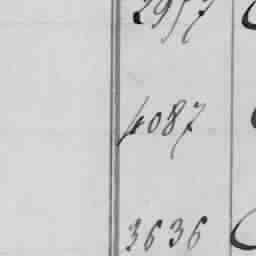 2957
4087
3636